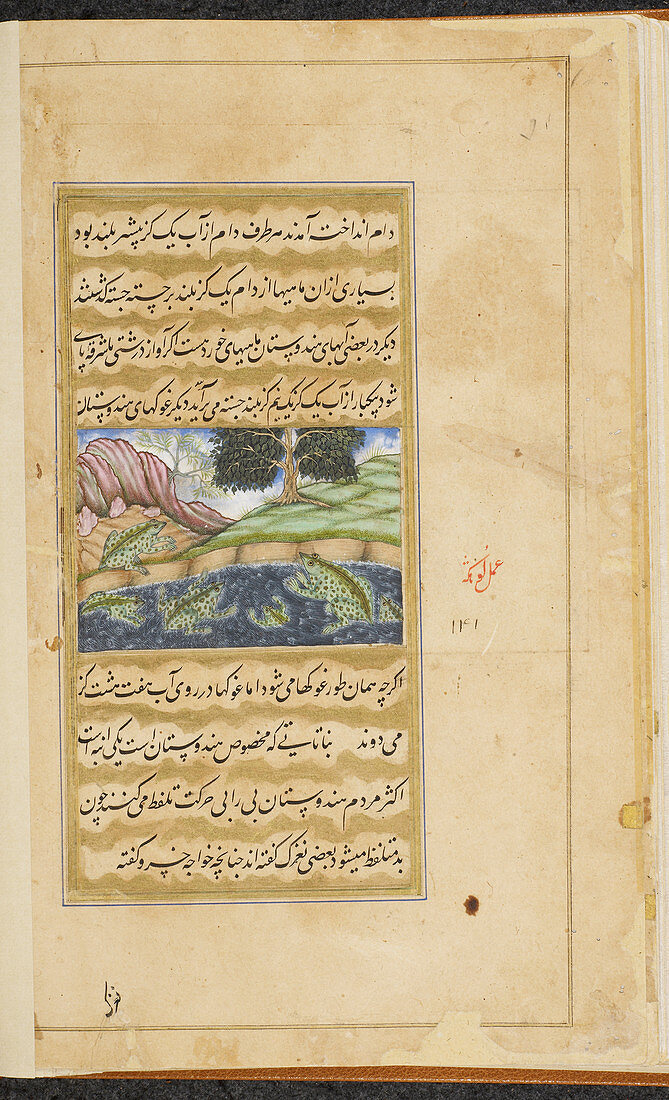 دام انداخته آمدند هر طرف دام از آب یک گز بیشتر بلند بود
بسیاری ازان ماهیها از دام یک گز بلند برجسته جسته گذشتند
دیگر در بعضی آبهای هندوستان ماهیهای خورد هست اگر آواز درشتی یا شرفه پای
شود یکبار از آب یک گز یک نیم گز بلند جسته می برآید دیگر غوکهای هندوستان
اگرچه همان طور غوکها می شود اما غوکها در روی آب هفت هشت گز
می دوند نباتاتے که مخصوص هندوستان است یکی انبه است
اکثر مردم هندوستان بی را بی حرکت تلفظ می کنند چون
بد متلفظ میشود بعضی نغزک گفته اند چنانچه خواجه خسرو گفته
عمل
۱۴۱